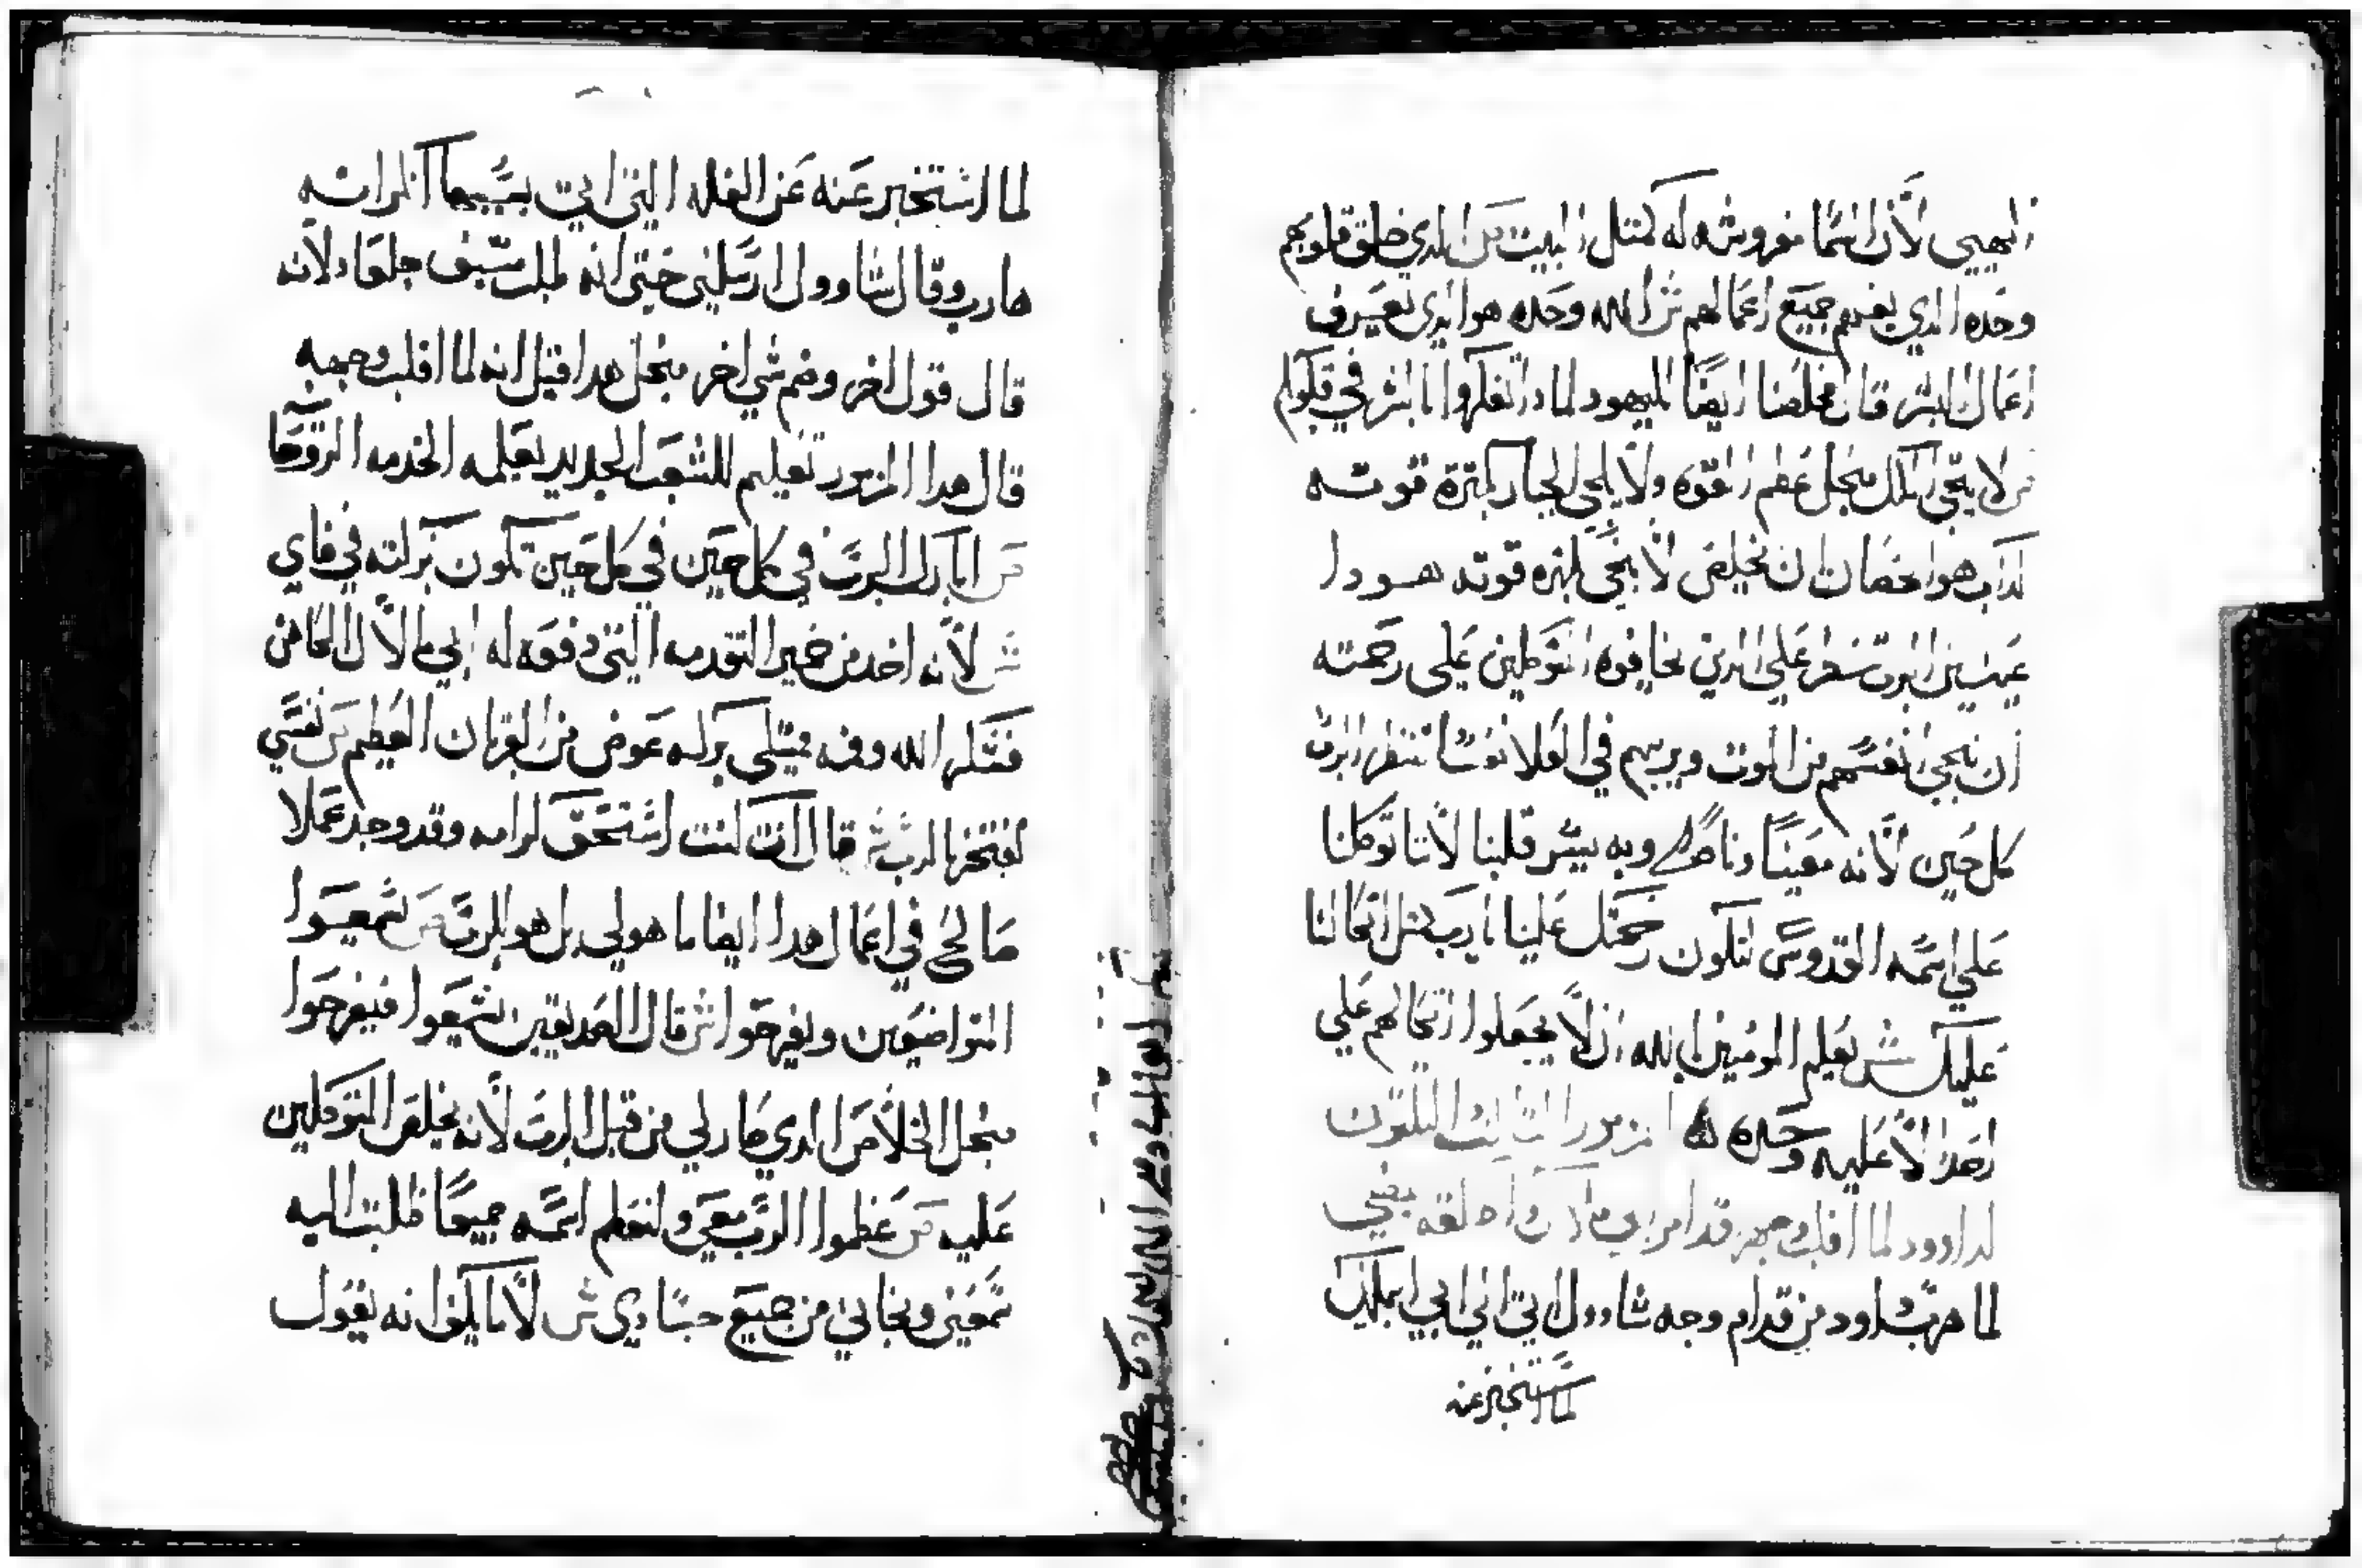 الهيي لأن السما مفروشه له كمتل البيت من الدي خلق قلوبهم
وحده الدي يفهم جميع اعمالهم ش الله وحده هو الدي يعرف
اعمال البشر قال مخلصنا ايضًا لليهود لمادا تفكروا بالشر في قلوبكم
من لا ينجي الملك منجل عظم القوه ولا ينجي الجبار بكترة قوته
كداب هو الحصان ان يخلص لا ينجي بكتره قوته هودا
عينين الرب تنظر علي الدين يخافوه المتوكلين علي رحمته
ان ينجي انفسهم من الموت ويربيهم في الغلا نفوسنا تنتظر الرب
كل حين لأنه معينًا وناصرًا وبه يسر قلبنا لأننا توكلنا
علي اسمه القدوس لتكون رحمتك علينا يا رب متل اتكالنا
عليك ش تعليم المومنين بالله ان لا يجعلوا اتكالهم علي
احدا الا عليه وحده المزمور التالت والتلتون
لداوود لما اقلب وجهه قدام ابي مالك واطلقه بمضي
لما هرب داود من قدام وجه شاوول اتي الي ابي ابيمالك
لما استخبر عنه
لما استخبر عنه عن العله التي اتي بسببها اظهر انه
هارب وقال شاوول ارسلني حتى انه طلب سيف جلعاد لأنه
قال قول اخر وضم شي اخر منجل هدا قيل انه لما اقلب وجهه
قال هدا المزمور تعليم للشعب الجديد يعلمه الخدمه الروحا
من ابارك الرب في كل حين في كل حين تكون بركته في فاي
ش لأنه اخد من خبز التقدمه التي دفعه له ابي مالك الكاهن
فشكر الله وفه ممتلي بركه عوض من القربان العظيم من نفسي
تفتخر بالرب ش قال انت كنت استحق كرامه وقد وجد عملا
صالح في اعمال هدا ايضا ما هو لي بل هو للرب من تسمعوا
المتواضعين ويفرحوا ش قال الصديقين يسمعوا فيفرحوا
منجل الخلاص الدي صار لي من قبل الرب لأنه يخلص المتوكلين
عليه من عظموا الرب معي ولنعظم اسمه جميعًا طلبت اليه
سمعني ونجاني من جميع حسادي ش لأن ما يكفي انه يقول